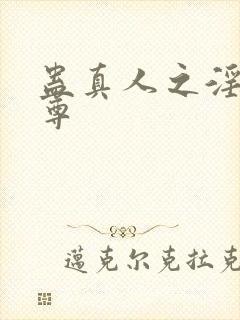 蛊真人之淫
尊
邁克尔克拉克